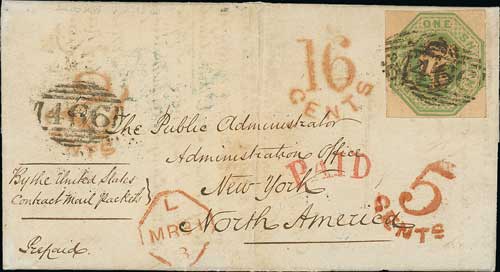 16
CENTS
ONE SHILLING
466
The Public Administrator
Administration Office
PAID
New York
North America
By the United States
Contract Mail Packets
Prepaid.
L
MR
3
5
CENTS